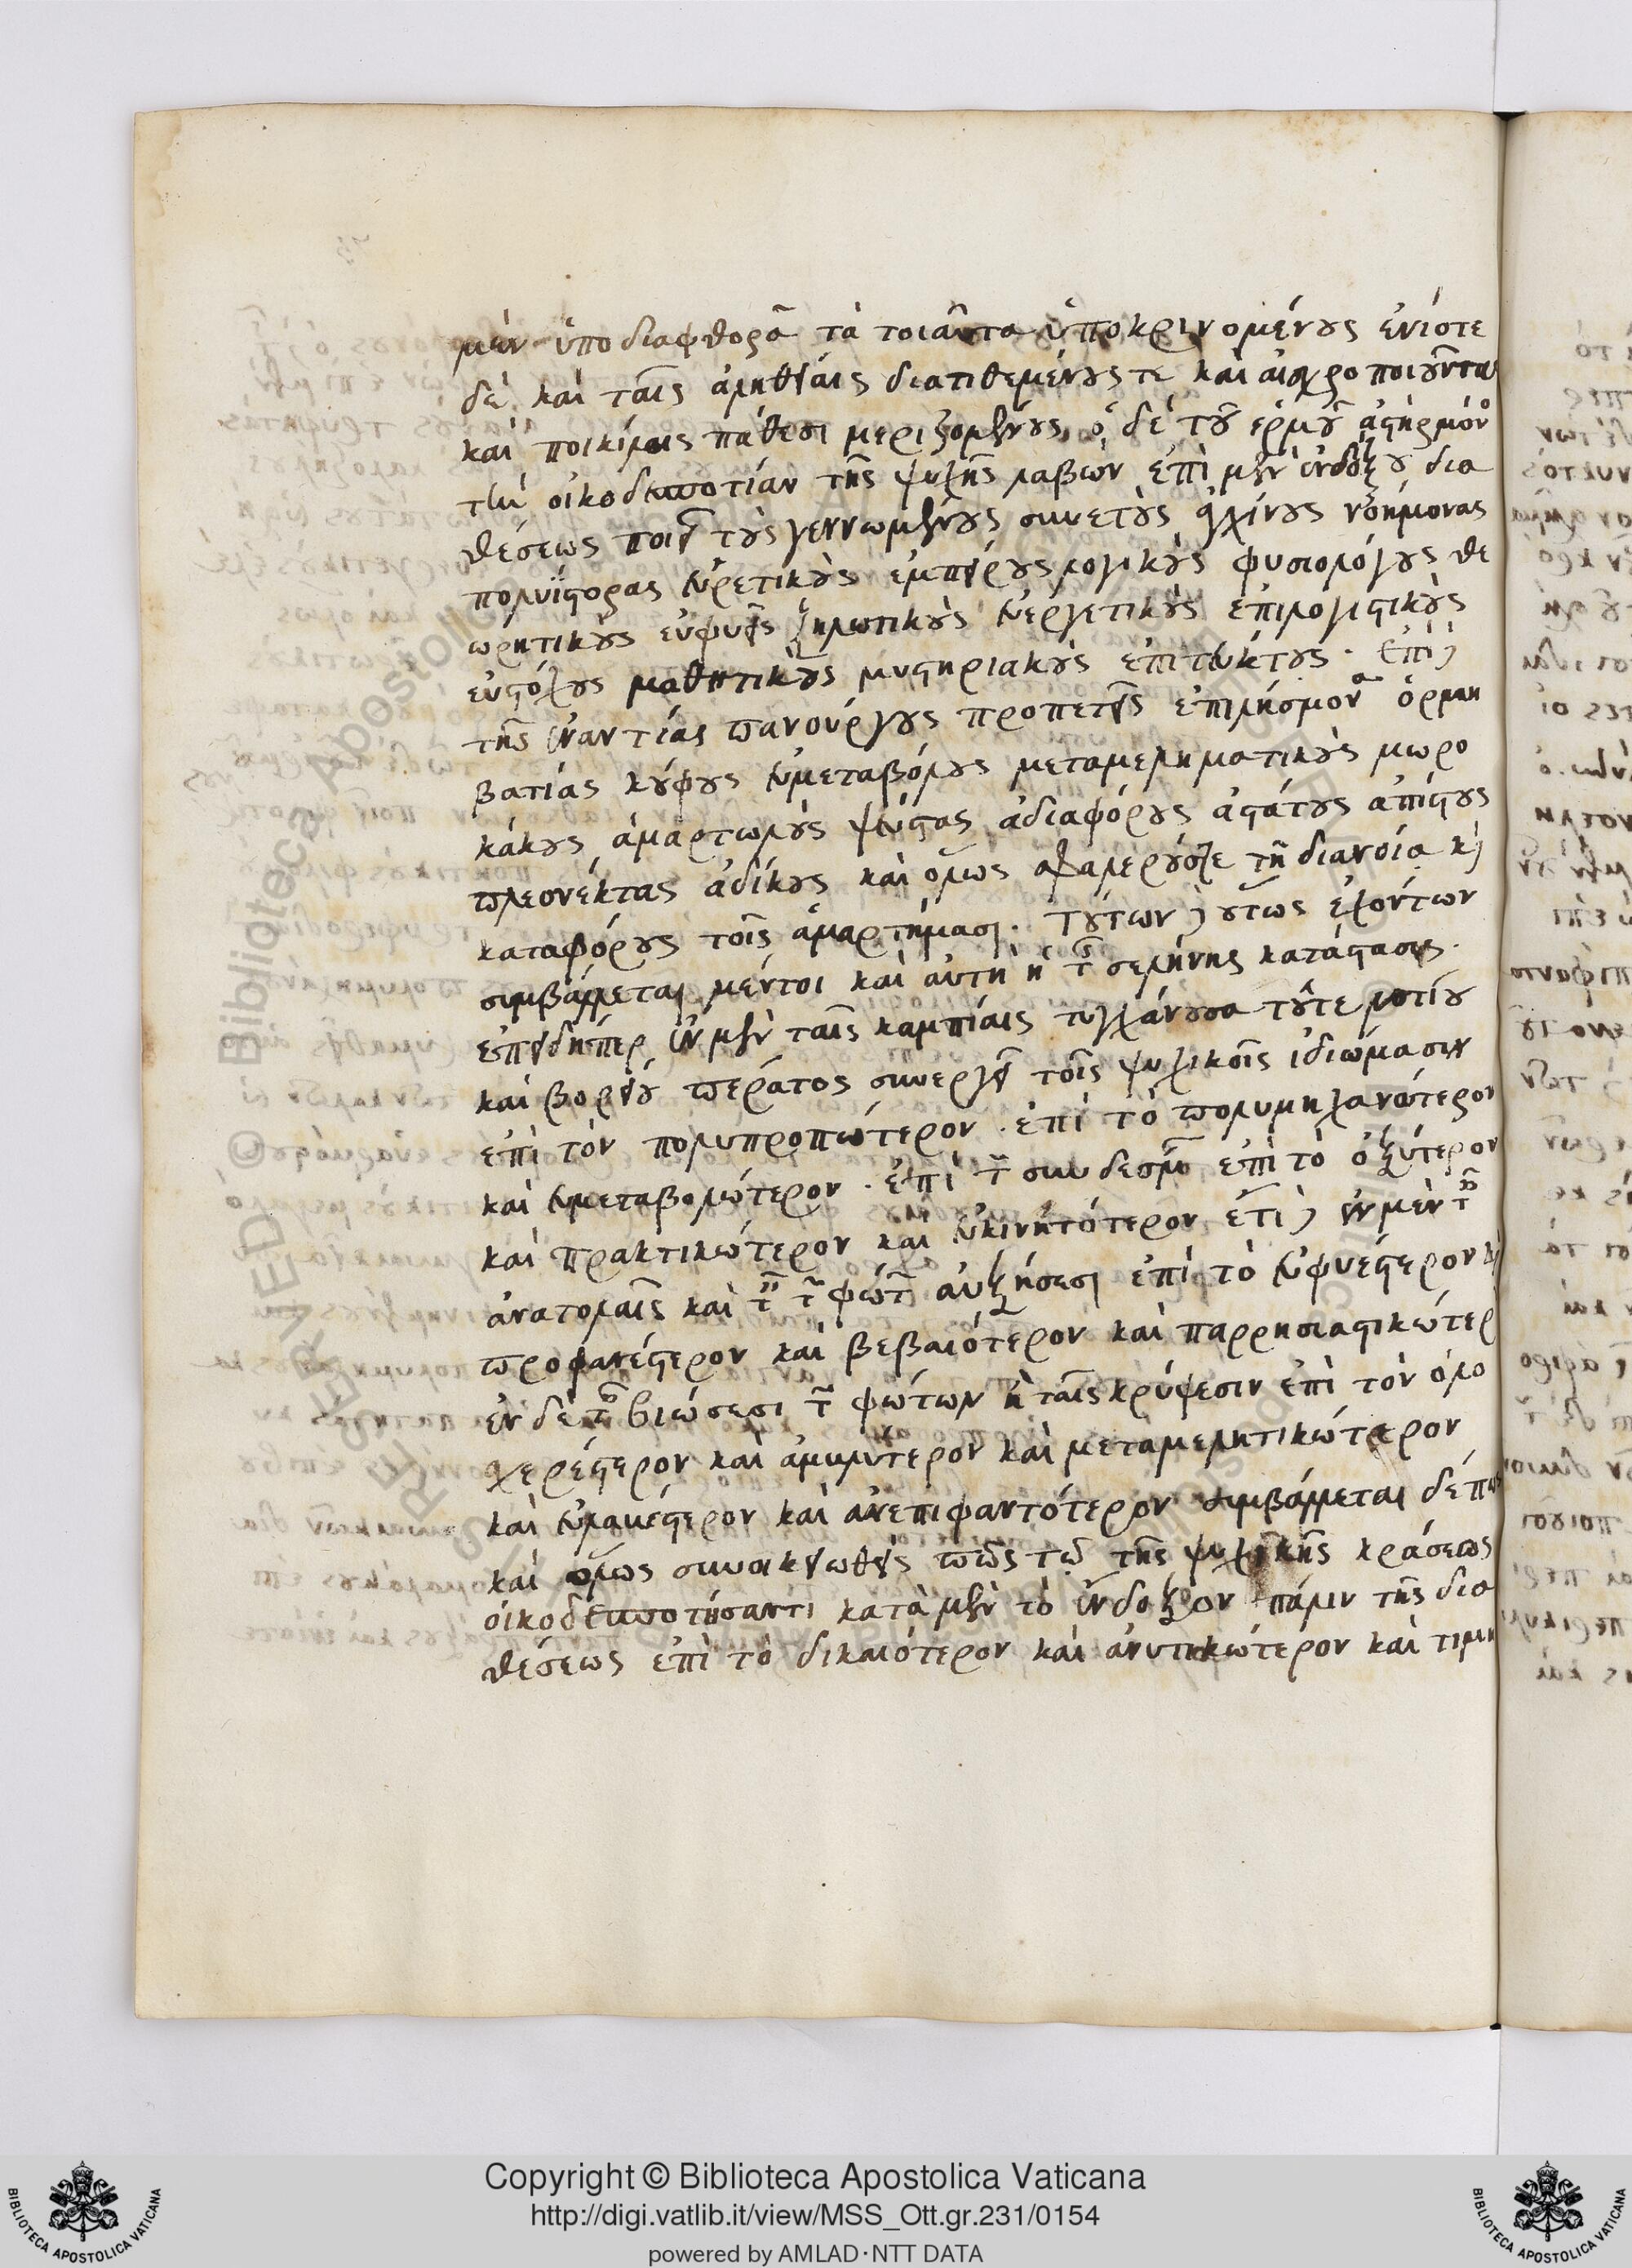 μὲν ὑποδιαφθορᾶ τὰ τοιαῦτα ὑποκρινομένους ἐνίοτε
δὲ καὶ ταῖς ἀληθείαις διατιθεμένους τε καὶ αἰσχροποιοῦντας
καὶ ποικίλοις πάθεσι μεριζομένους, ὁ δὲ τοῦ ἑρμοῦ ἀστὴρ μόνος
τὴν οἰκοδεσποτίαν τῆς ψυχῆς λαβὼν ἐπὶ μὲν ἐνδόξου δια
θέσεως ποιεῖ τοὺς γεννωμένους συνετοὺς ἀγχίνους νοήμονας
πολυΐστορας εὑρετικοὺς ἐμπείρους λογικοὺς φυσιολόγους θε
ωρητικοὺς εὐφυεῖς ζηλωτικοὺς εὐεργετικοὺς ἐπιλογιστικοὺς
εὐστόχους μαθητικοὺς μυστηριακοὺς ἐπιτευκτους. ἐπὶ δὲ
τῆς ἐναντίας πανούργους προπετεῖς ἐπιλήσμονας ὁρμη
βατίας κούφους εὐμεταβόλους μεταμελημτικοὺς μωρο
κάκους ἁμαρτωλοὺς ψεύστας ἀδιαφόρους ἀστάτους ἀπίστους
πλεονέκτας ἀδίκους καὶ ὅλως σφαλερούς τε τῇ διανοίᾳ καὶ
καταφόρους τοῖς ἁμαρτήμασι. τούτων δὲ οὕτως ἐχόντων
συμβάλλεται μέντοι καὶ αὐτὴ ἡ τῆς σελήνης κατάστασις.
ἐπειδήπερ ἐν μὲν ταῖς καμπίαις τυγχάνουσα τοῦτε νοτίου
καὶ βορείου πέρατος συνεργεῖ τοῖς ψυχικοῖς ἰδιώμασιν
ἐπὶ τὸν πολυπροπώτερον. ἐπὶ τὸ πολυμηχανώτερον
καὶ εὐμεταβολώτερον. ἐπὶ τῶν συνδέσμων ἐπὶ τὸ ὀξύτερον
καὶ πρακτικώτερον καὶ εὐκινητότερον ἔτι δὲ ἐν μὲν ταῖς
ἀνατολαῖς καὶ ταῖς τῶν φώτων αὐξήσεσι ἐπὶ τὸ εὐφυέστερον καὶ
προφανέστερον καὶ βεβαιότερον καὶ παρρησιαστικώτερον
ἐν δὲ ταῖς βιώσεσι τῶν φώτων ἢ ταῖς κρύψεσιν ἐπὶ τὸν ὁλο
σχερέστερον καὶ ἀμβλύτερον καὶ μεταμελητικώτερον
καὶ εὐλαβέστερον καὶ ἀνεπιφαντότερον συμβάλλεται δέ πως
καὶ ὅλως συνοικειωθεὶς πῶς τῷ τῆς ψυχικῆς κράσεως
οἰκοδεσποτήσαντι κατὰ μὲν τὸ ἔνδοξον πάλιν τῆς δια
θέσεως ἐπὶ τὸ δικαιότερον καὶ ἀνυτικώτερον καὶ τιμη
Copyright © Biblioteca Apostolica Vaticana
http://digi.vatlib.it/view/MSS_Ott.gr.231/0154
powered by AMLAD·NTT DATA
BIBLIOTECA APOSTOLICA VATICANA
BIBLIOTECA APOSTOLICA VATICANA